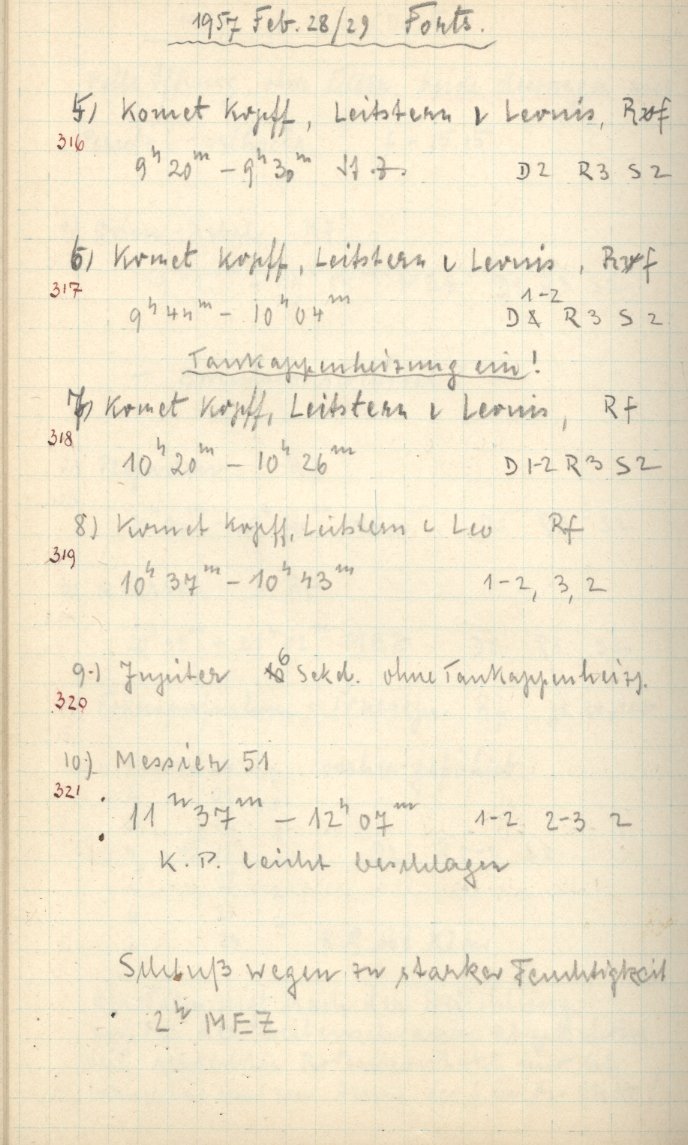 1957 Feb. 28/29 Forts.
5) Komet Kopff, Leitstern ι Leonis, Rxf
316
9ʰ 20ᵐ – 9ʰ 30ᵐ St. Z. D2 R3 S2
6) Komet Kopff, Leitstern ι Leonis, Rxf
317
9ʰ 44ᵐ – 10ʰ 04ᵐ D 1-2 R3 S2
Taukappenheizung ein!
7) Komet Kopff, Leitstern ι Leonis, Rf
318
10ʰ 20ᵐ – 10ʰ 26ᵐ D1-2 R3 S2
8) Komet Kopff, Leitstern ι Leo Rf
319
10ʰ 37ᵐ – 10ʰ 43ᵐ 1-2, 3, 2
9.) Jupiter 6 Sekd. ohne Taukappenheizg.
320
10.) Messier 51
321
11ʰ 37ᵐ – 12ʰ 07ᵐ 1-2 2-3 2
K. P. leicht beschlagen
Schluß wegen zu starker Feuchtigkeit
2ʰ MEZ